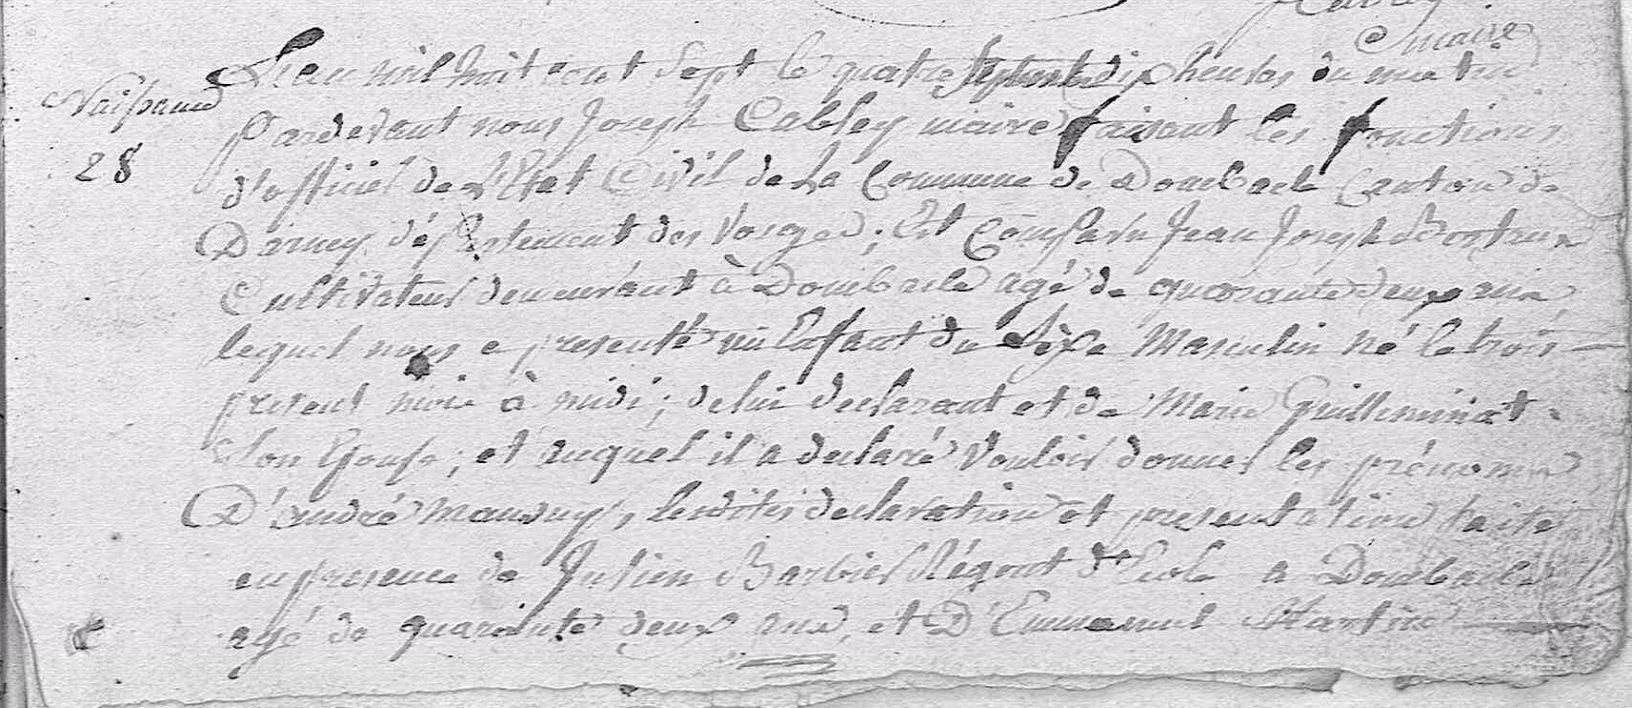 maire
L'an mil huit cent sept le quatre septembre dix heures du matin
Naissance
28
Pardevant nous Joseph Cabley maire faisant les fonctions
d'officier de l'Etat Civil de La Commune de Dombasle Canton de
Darney département des Vosges; Est Comparu Jean Joseph
Cultivateur demeurant à Dombasle agé de quarante deux ans
lequel nous a presenté un Enfant du Sexe Masculin né le trois
present mois à midi; de lui declarant et de Marie Guilleminot
Son Epouse; et auquel il a declaré Vouloir donner les prénoms
D'andré mansuy, lesdites declaration et presentation faite
en presence de Julien Barbier Régent d'Ecole a Dombasle
agé de quarante deux ans, et D'Emmanuel Martin